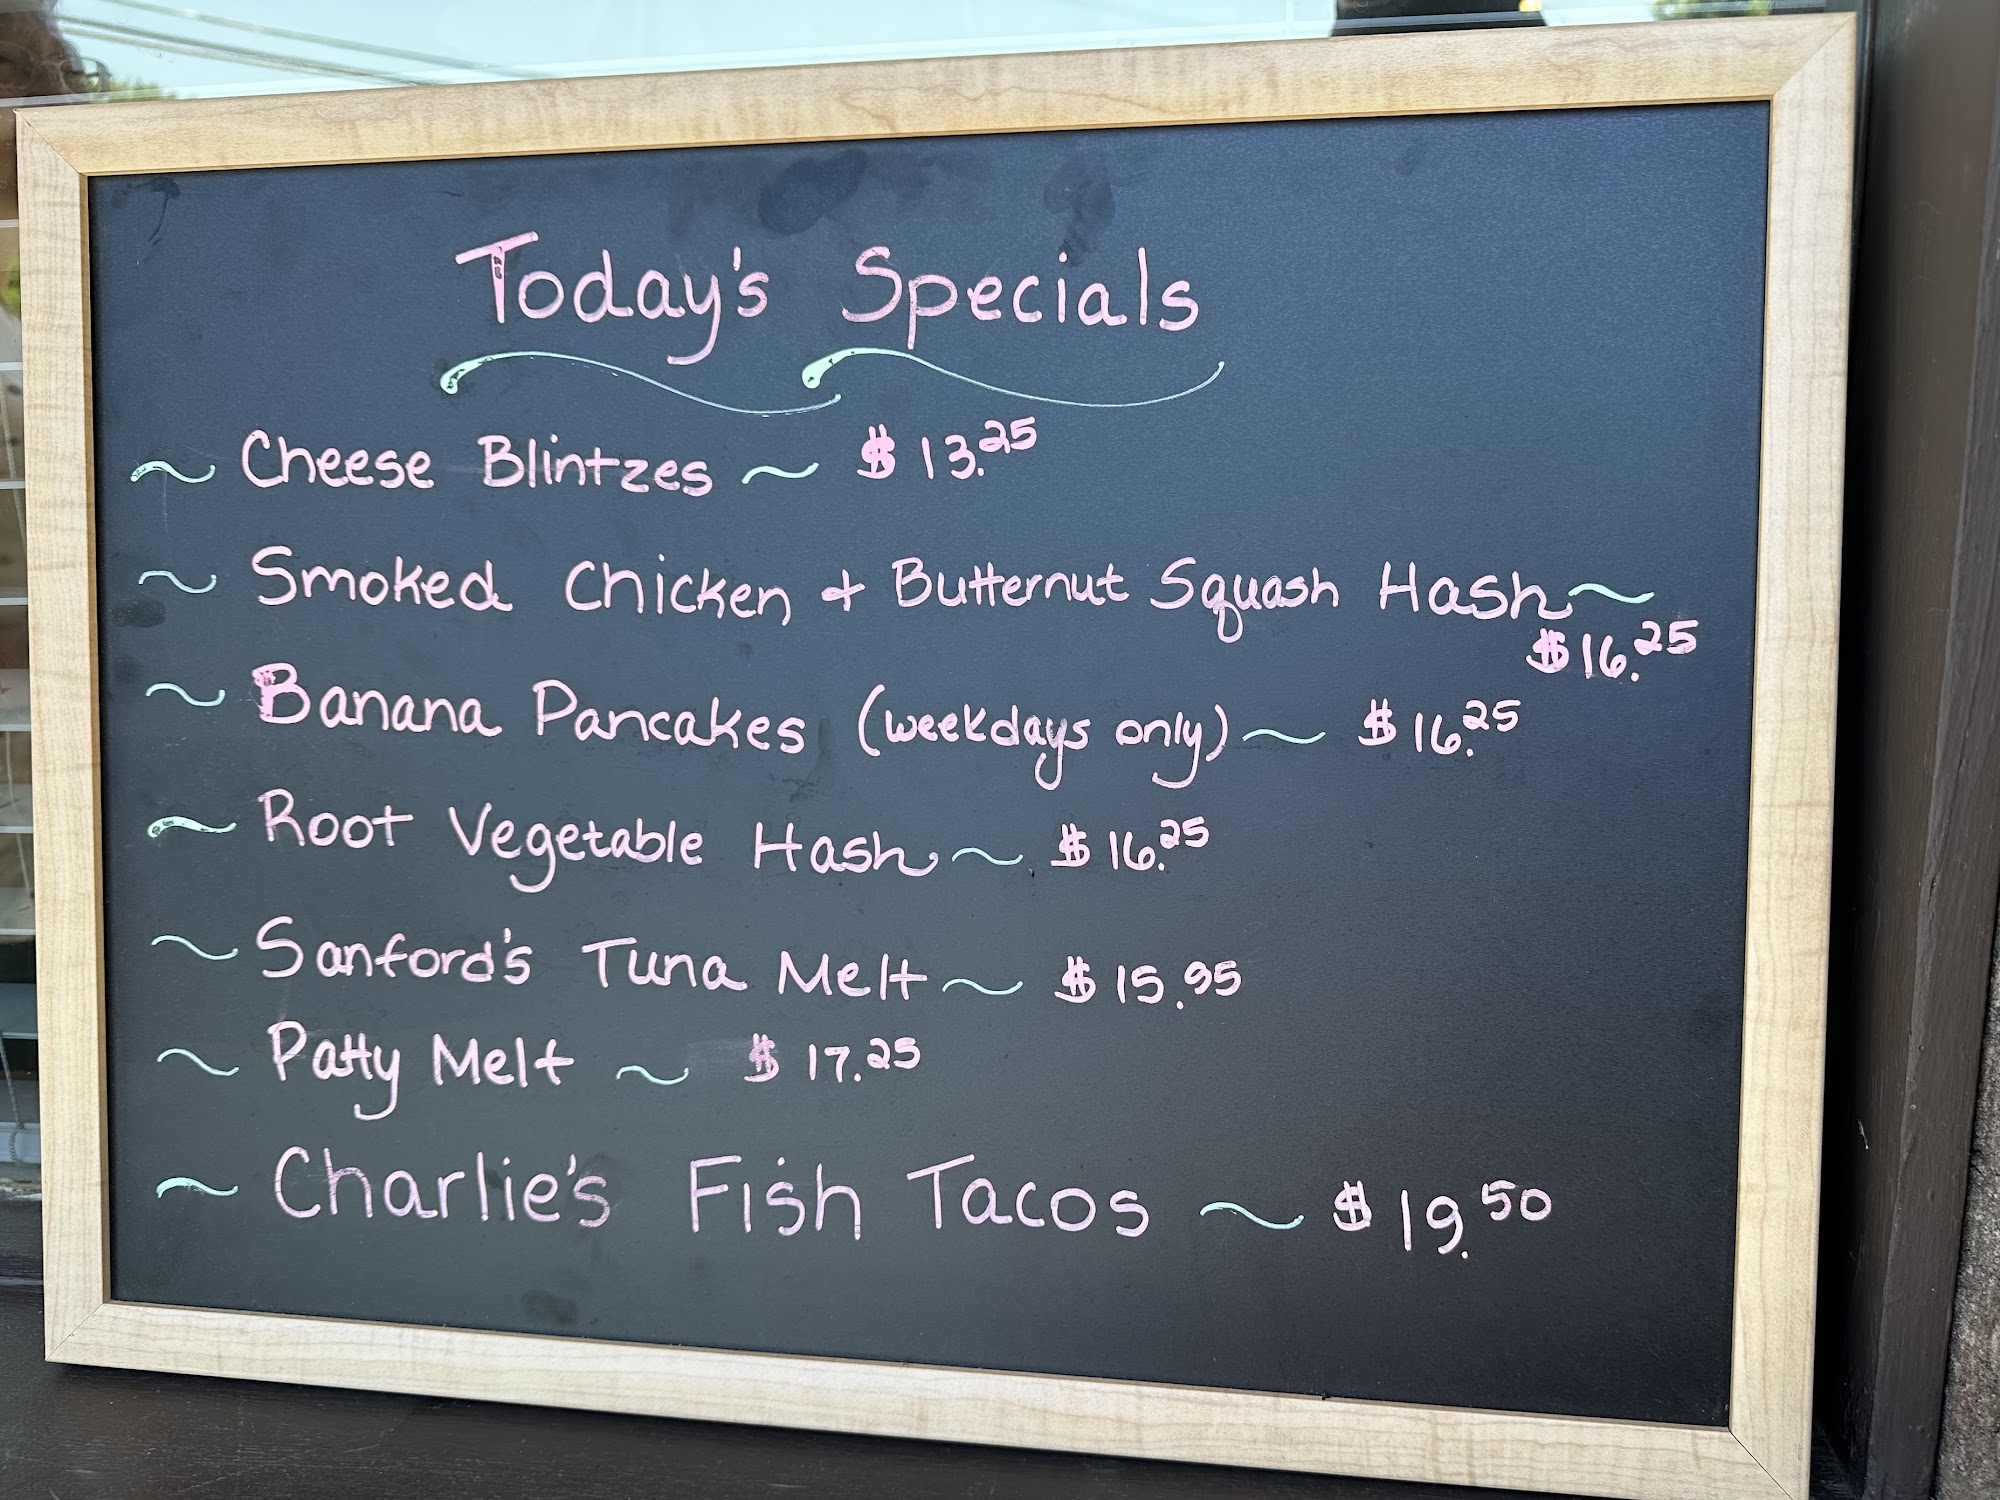 Today's Specials
~ Cheese Blintzes ~ $13.25
~ Smoked Chicken + Butternut Squash Hash ~
$16.25
~ Banana Pancakes (weekdays only) ~ $16.25
~ Root Vegetable Hash ~ $16.25
~ Sanford's Tuna Melt ~ $15.95
~ Patty Melt ~ $17.25
~ Charlie's Fish Tacos ~ $19.50